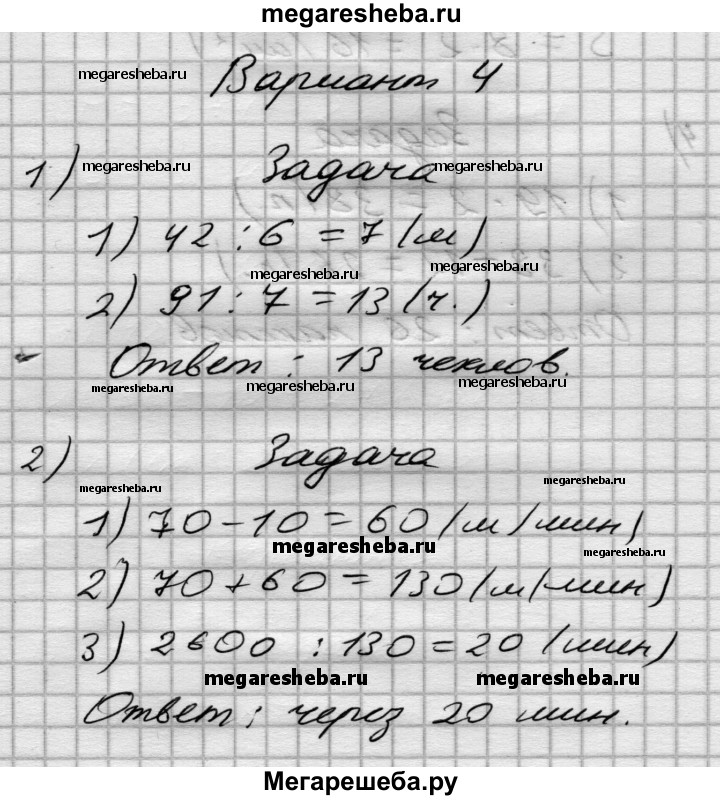 megaresheba.ru
megaresheba.ru
Вариант 4
1) megaresheba.ru Задача megaresheba.ru
1) 42 : 6 = 7 (м)
megaresheba.ru megaresheba.ru
2) 91 : 7 = 13 (ч.)
Ответ : 13 чехлов.
megaresheba.ru megaresheba.ru megaresheba.ru
2) Задача
megaresheba.ru megaresheba.ru
1) 70 - 10 = 60 (м/мин)
megaresheba.ru megaresheba.ru
2) 70 + 60 = 130 (м/мин)
3) 2600 : 130 = 20 (мин)
megaresheba.ru megaresheba.ru
Ответ : через 20 мин.
Мегарешеба.ру